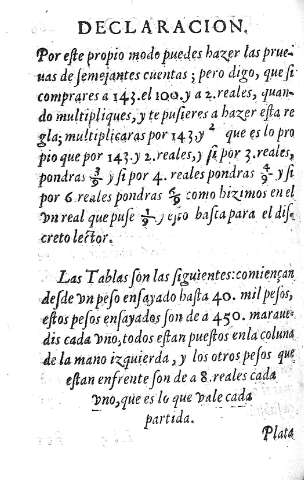 DECLARACION.
Por este propio modo puedes hazer las prue-
uas de semejantes cuentas; pero digo, que si
comprares a 143. el 100. y a 2. reales, quan-
do multipliques, y te pusieres a hazer esta re
gla; multiplicaras por 143. y 2 que es lo pro
pio que por 143. y 2. reales, y si por 3. reales,
pondras 3/9 y si por 4. reales pondras 4/9 y si
por 6. reales pondras 6/9 como hizimos en el
vn real que puse 1/9 y esto basta para el dis
creto lector.
Las Tablas son las siguientes: comiençan
desde vn peso ensayado hasta 40. mil pesos,
estos pesos ensayados son de a 450. maraue-
dis cada vno, todos estan puestos en la coluna
de la mano izquierda, y los otros pesos que
estan enfrente son de a 8. reales cada
vno, que es lo que vale cada
partida.
Plata